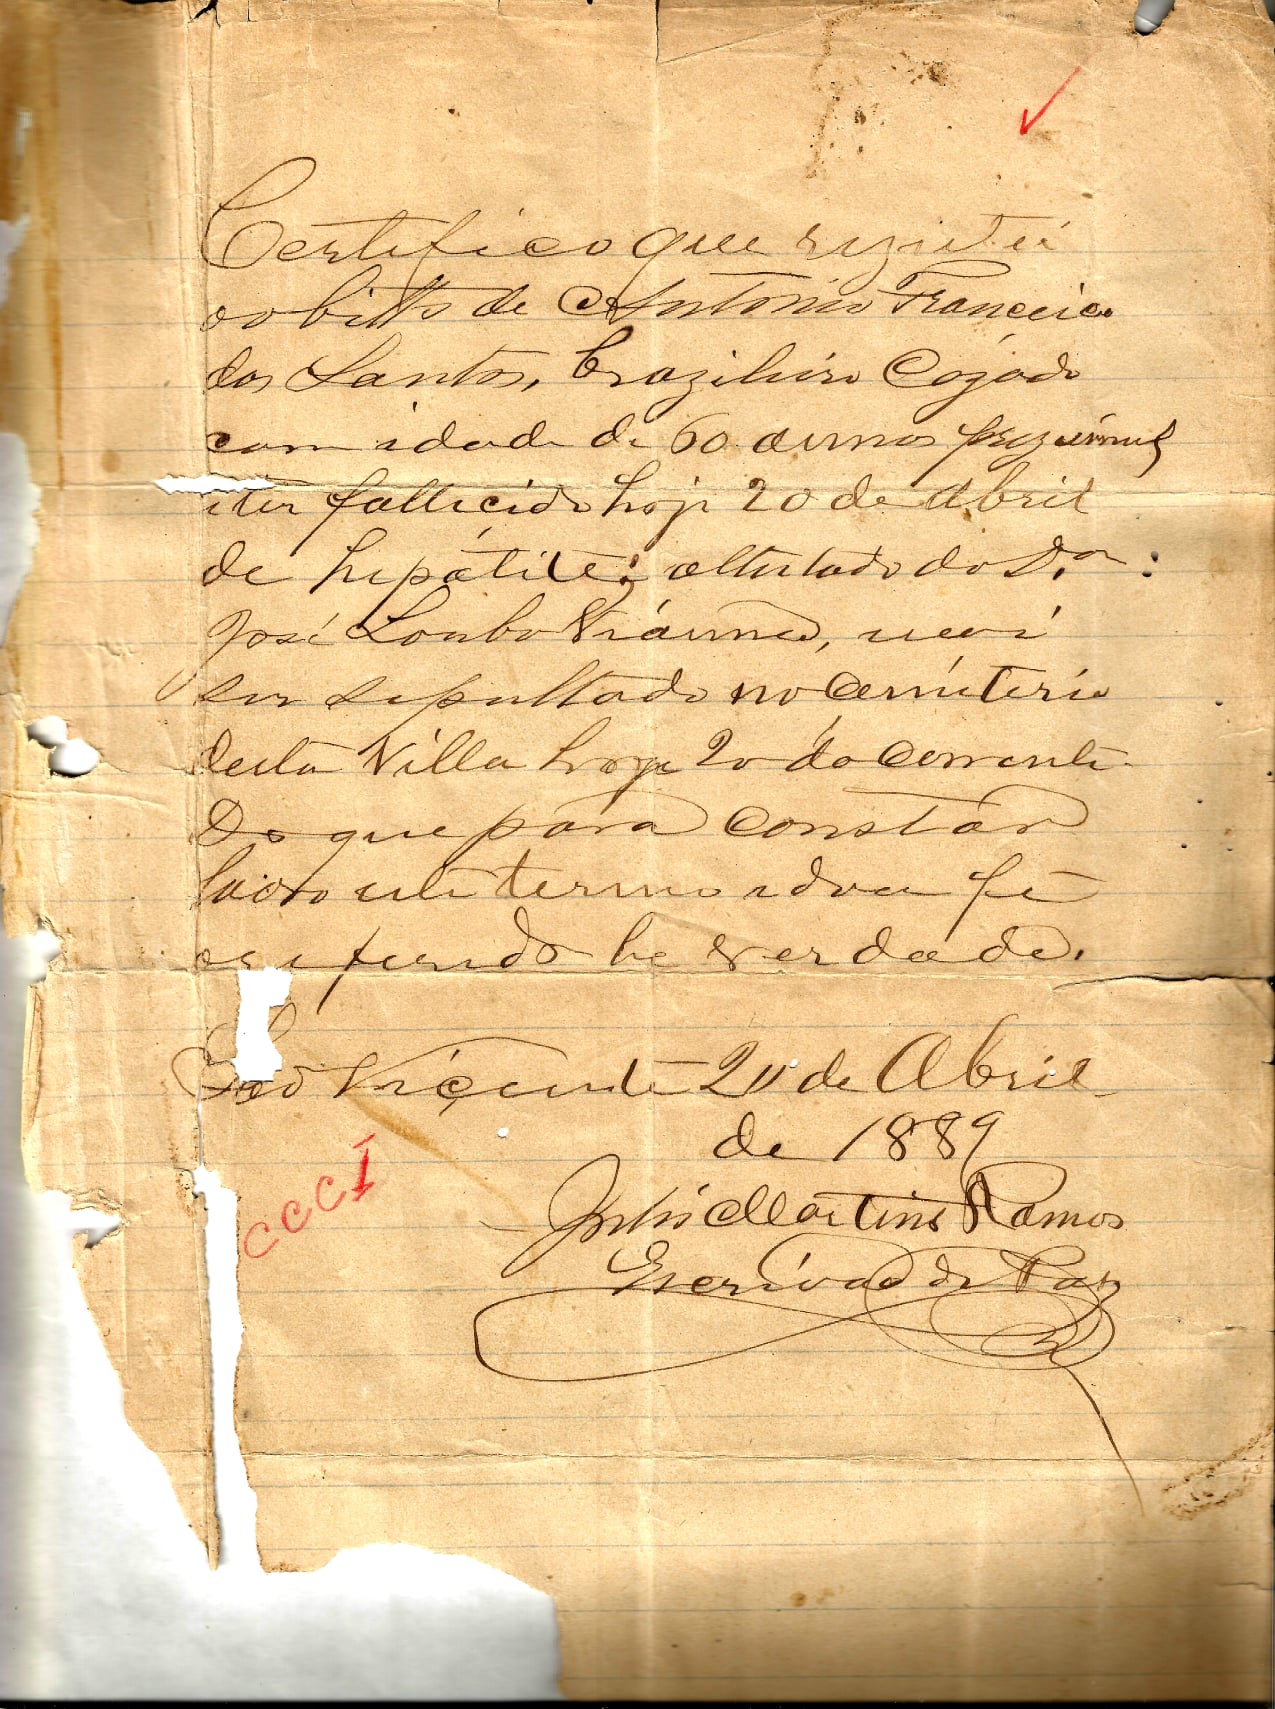 Certifico que
o obitto de Antonio Francisco
dos Santos, brazileiro Cazado
com idade de 60 annos
ter fallecido hoje 20 de Abril
de hepatite; attestado do Dor:
José Lonbo Vianna, vai
ser sepultado no Cemiterio
desta Villa hoje 20 do Corrente
Do que para constar
lavro este termo e dou fé
e referido he verdade.
São Vicente 20 de Abril
de 1889
Martins Ramos
Escrivão de Paz
CCCI